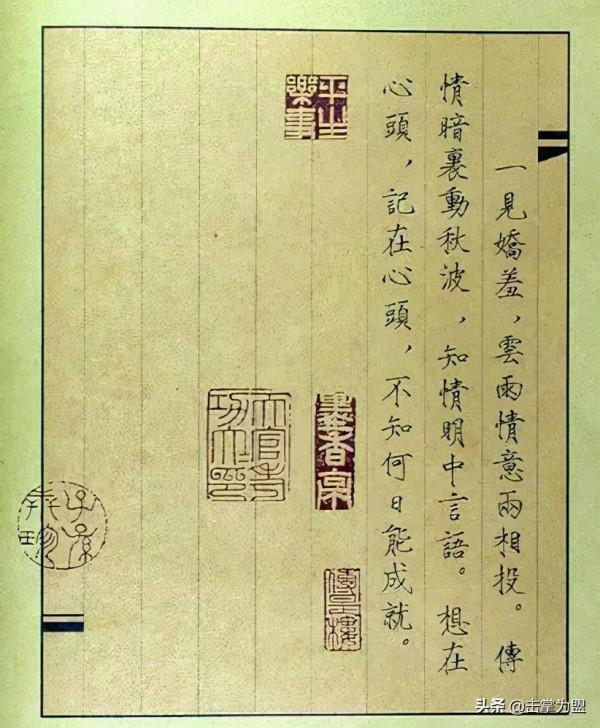 一見嬌羞，雲雨情意兩相投。傳
情暗裏動秋波，知情明中言語。想在
心頭，記在心頭，不知何日能成就。
平生樂事
墨香
傳是樓
头条 @击掌为盟